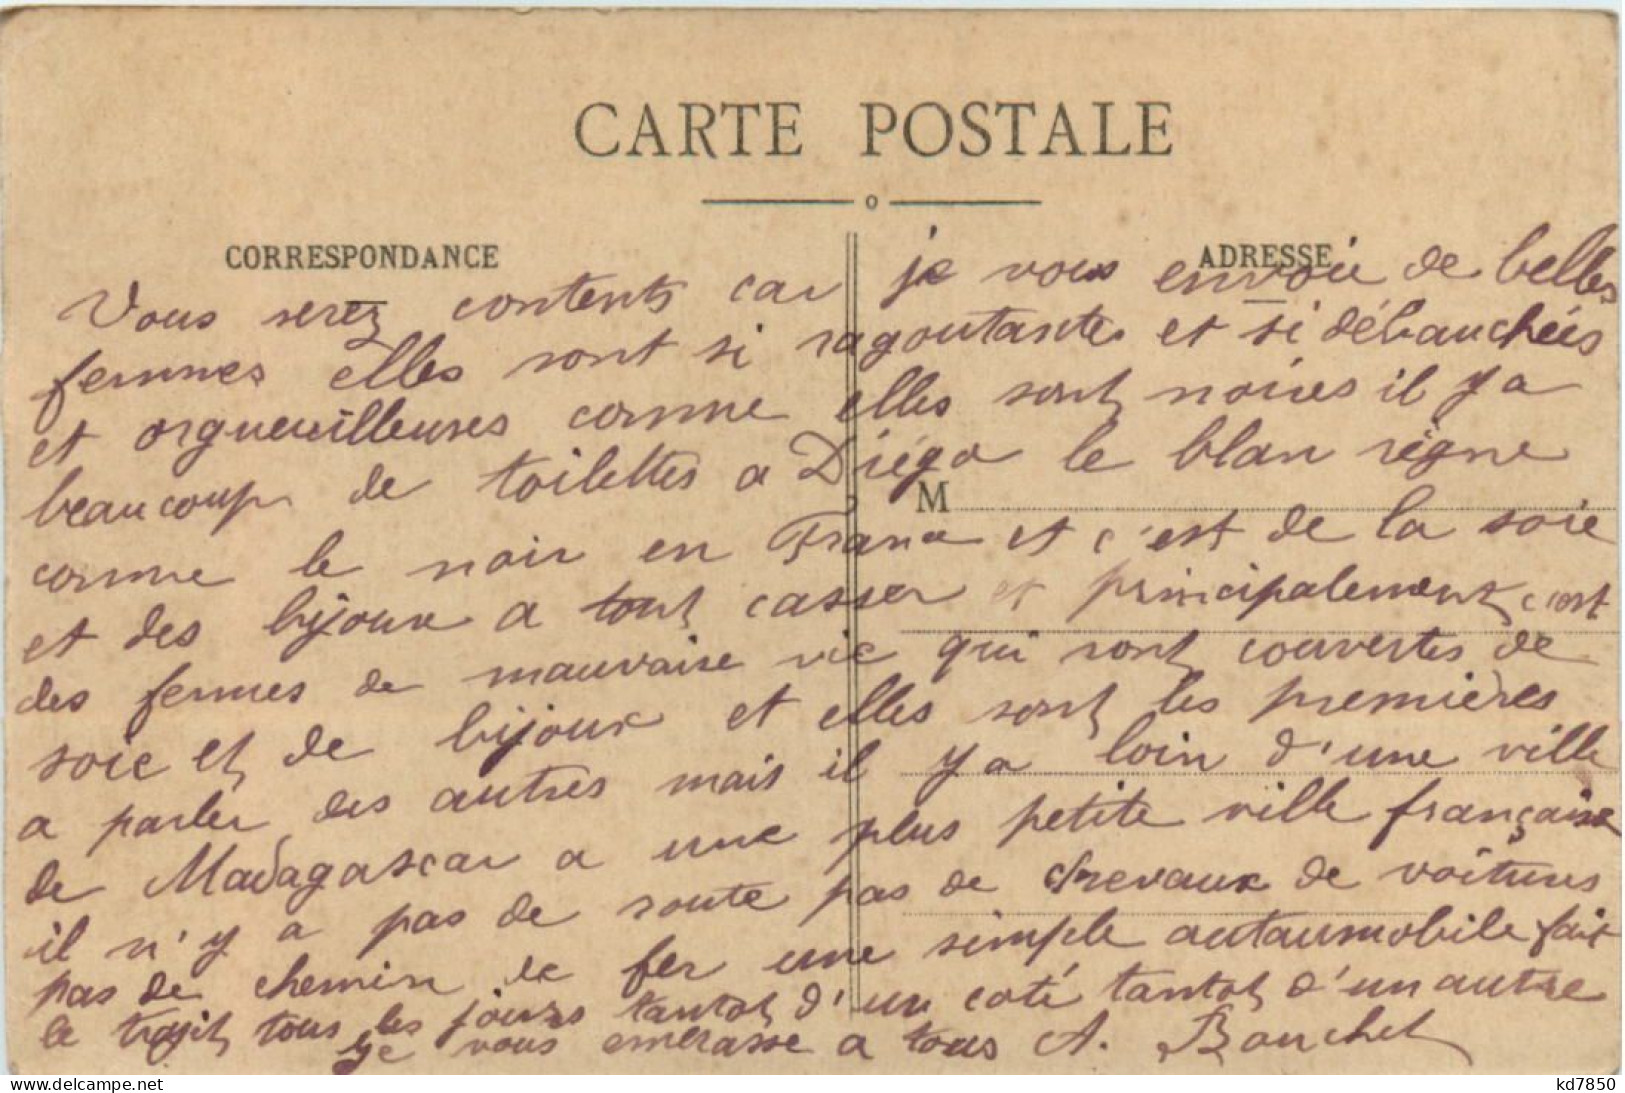 CARTE POSTALE
CORRESPONDANCE
ADRESSE
Vous serez contents car je vous envoie de belles
femmes elles sont si ragoutante et si débauchées
et orgueuilleuses comme elles sont noires il y a
beaucoup de toilettes a Diégo le blan règne
M
comme le noir en France et c'est de la soie
et des bijoux a tout casser et principalement c'est
des femmes de mauvaise vie qui sont couvertes de
soie et de bijoux et elles sont les premières
a parler des autres mais il y a loin d'une ville
de Madagascar a une plus petite ville française
il n'y a pas de route pas de chevaux de voitures
pas de chemin de fer une simple autaumobile fait
le trajit tous les jours tantot d'un coté tantot d'un autre
je vous embrasse a tous A. Bouchet
www.delcampe.net
kd7850